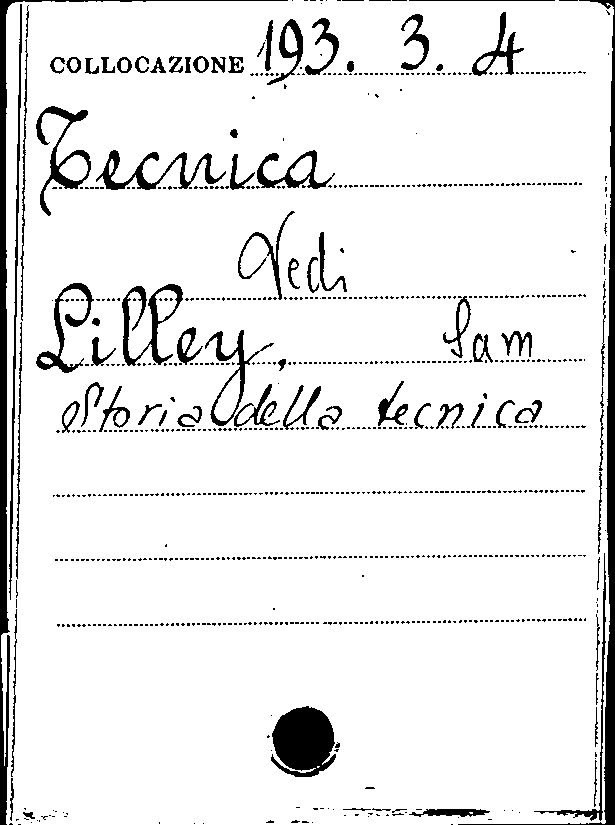 COLLOCAZIONE 193. 3. 4
Tecnica
Vedi
Lilley, Sam
Storia della tecnica